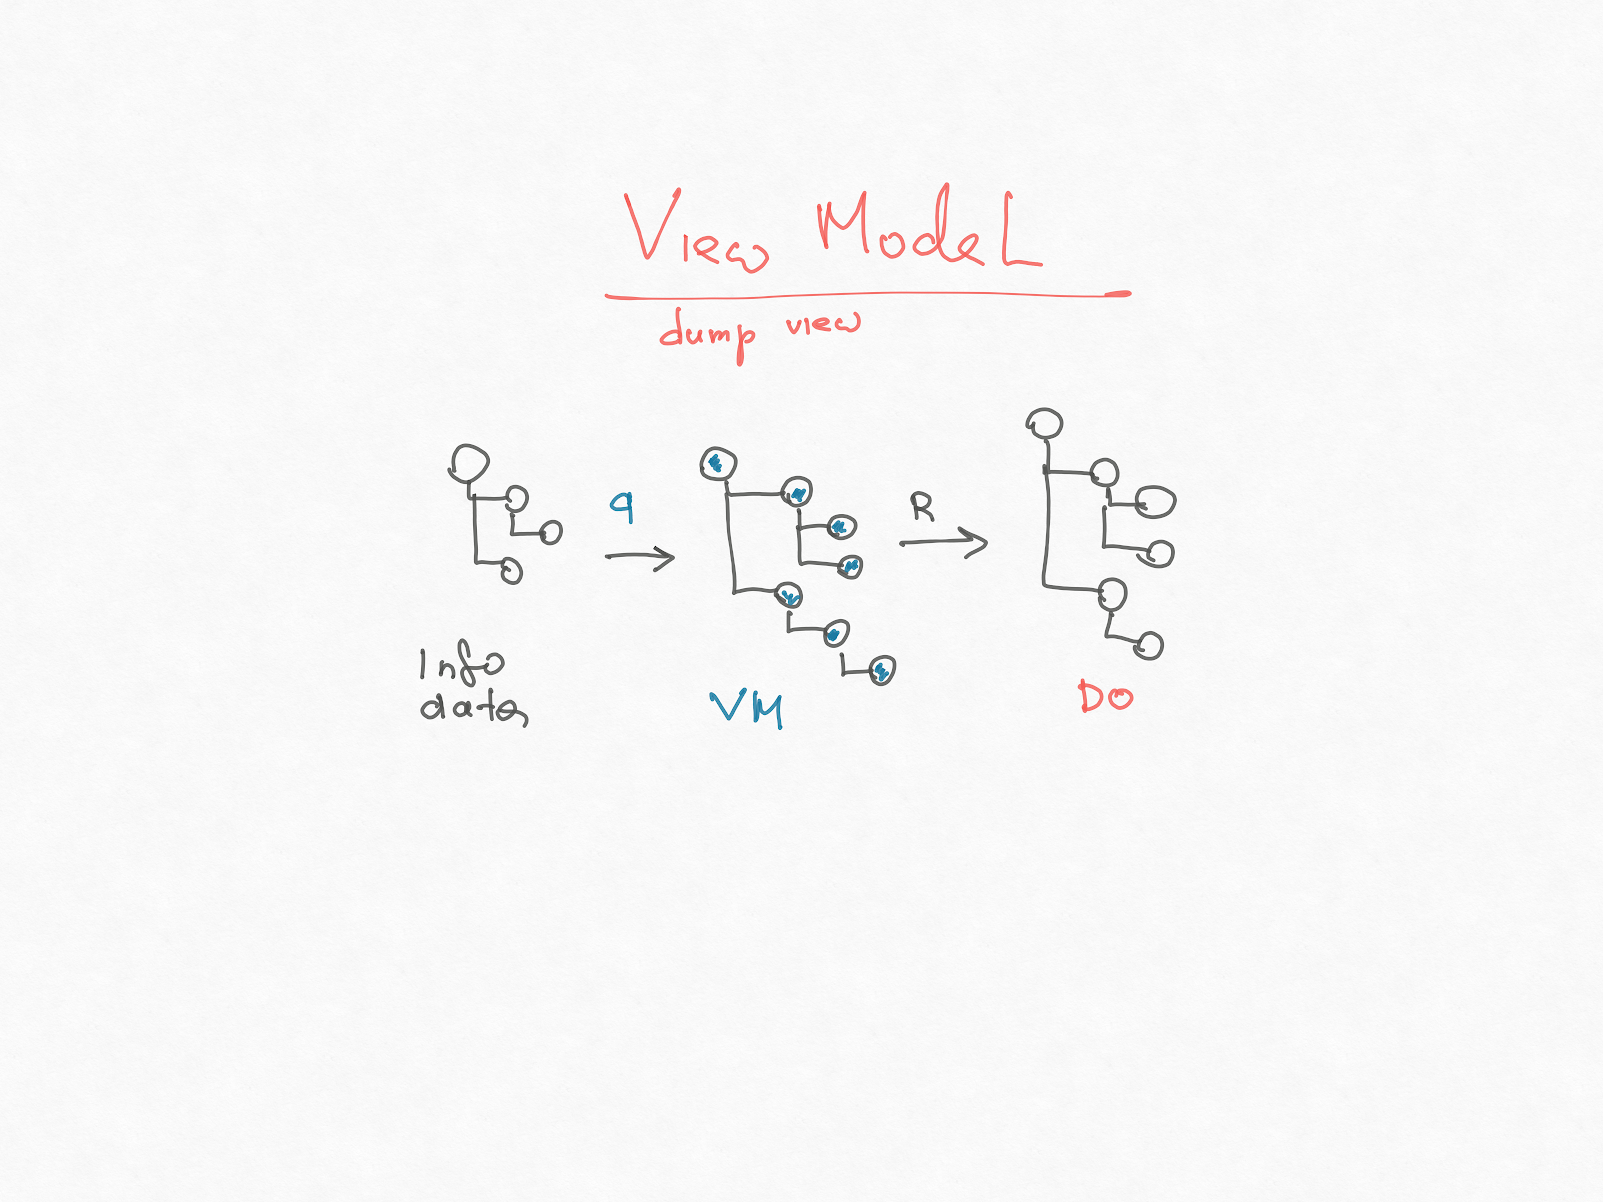 View Model
dump view
q
R
Info
data
VM
DO